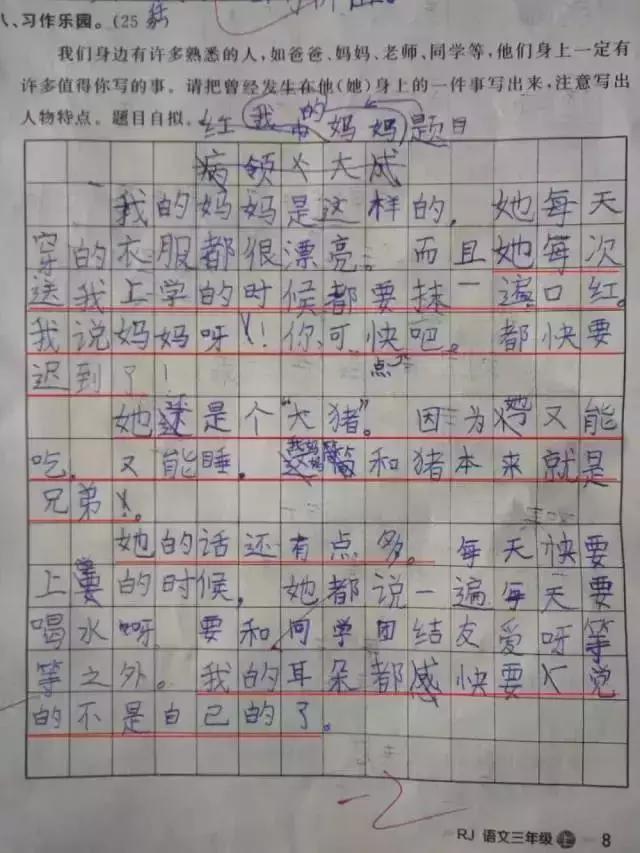 八、习作乐园。(25
我们身边有许多熟悉的人,如爸爸、妈妈、老师、同学等,他们身上一定有
许多值得你写的事。请把曾经发生在他(她)身上的一件事写出来,注意写出
人物特点。题目自拟。
红 我的妈妈 题目
病领 大成
我的妈妈是这样的,她每天
穿的衣服都很漂亮。而且她每次
送我上学的时候都要抹一遍口红。
我说妈妈呀!你可快点吧。都快要
迟到了!
她还是个“大猪”。因为她又能
吃,又能睡,我妈妈 和猪本来就是
兄弟。
她的话还有点多。每天快要
上学的时候,她都说一遍每天要
喝水呀 要和同学团结友爱呀等
等之外。我的耳朵都感快要 觉
的不是自己的了。
RJ 语文三年级 上 8